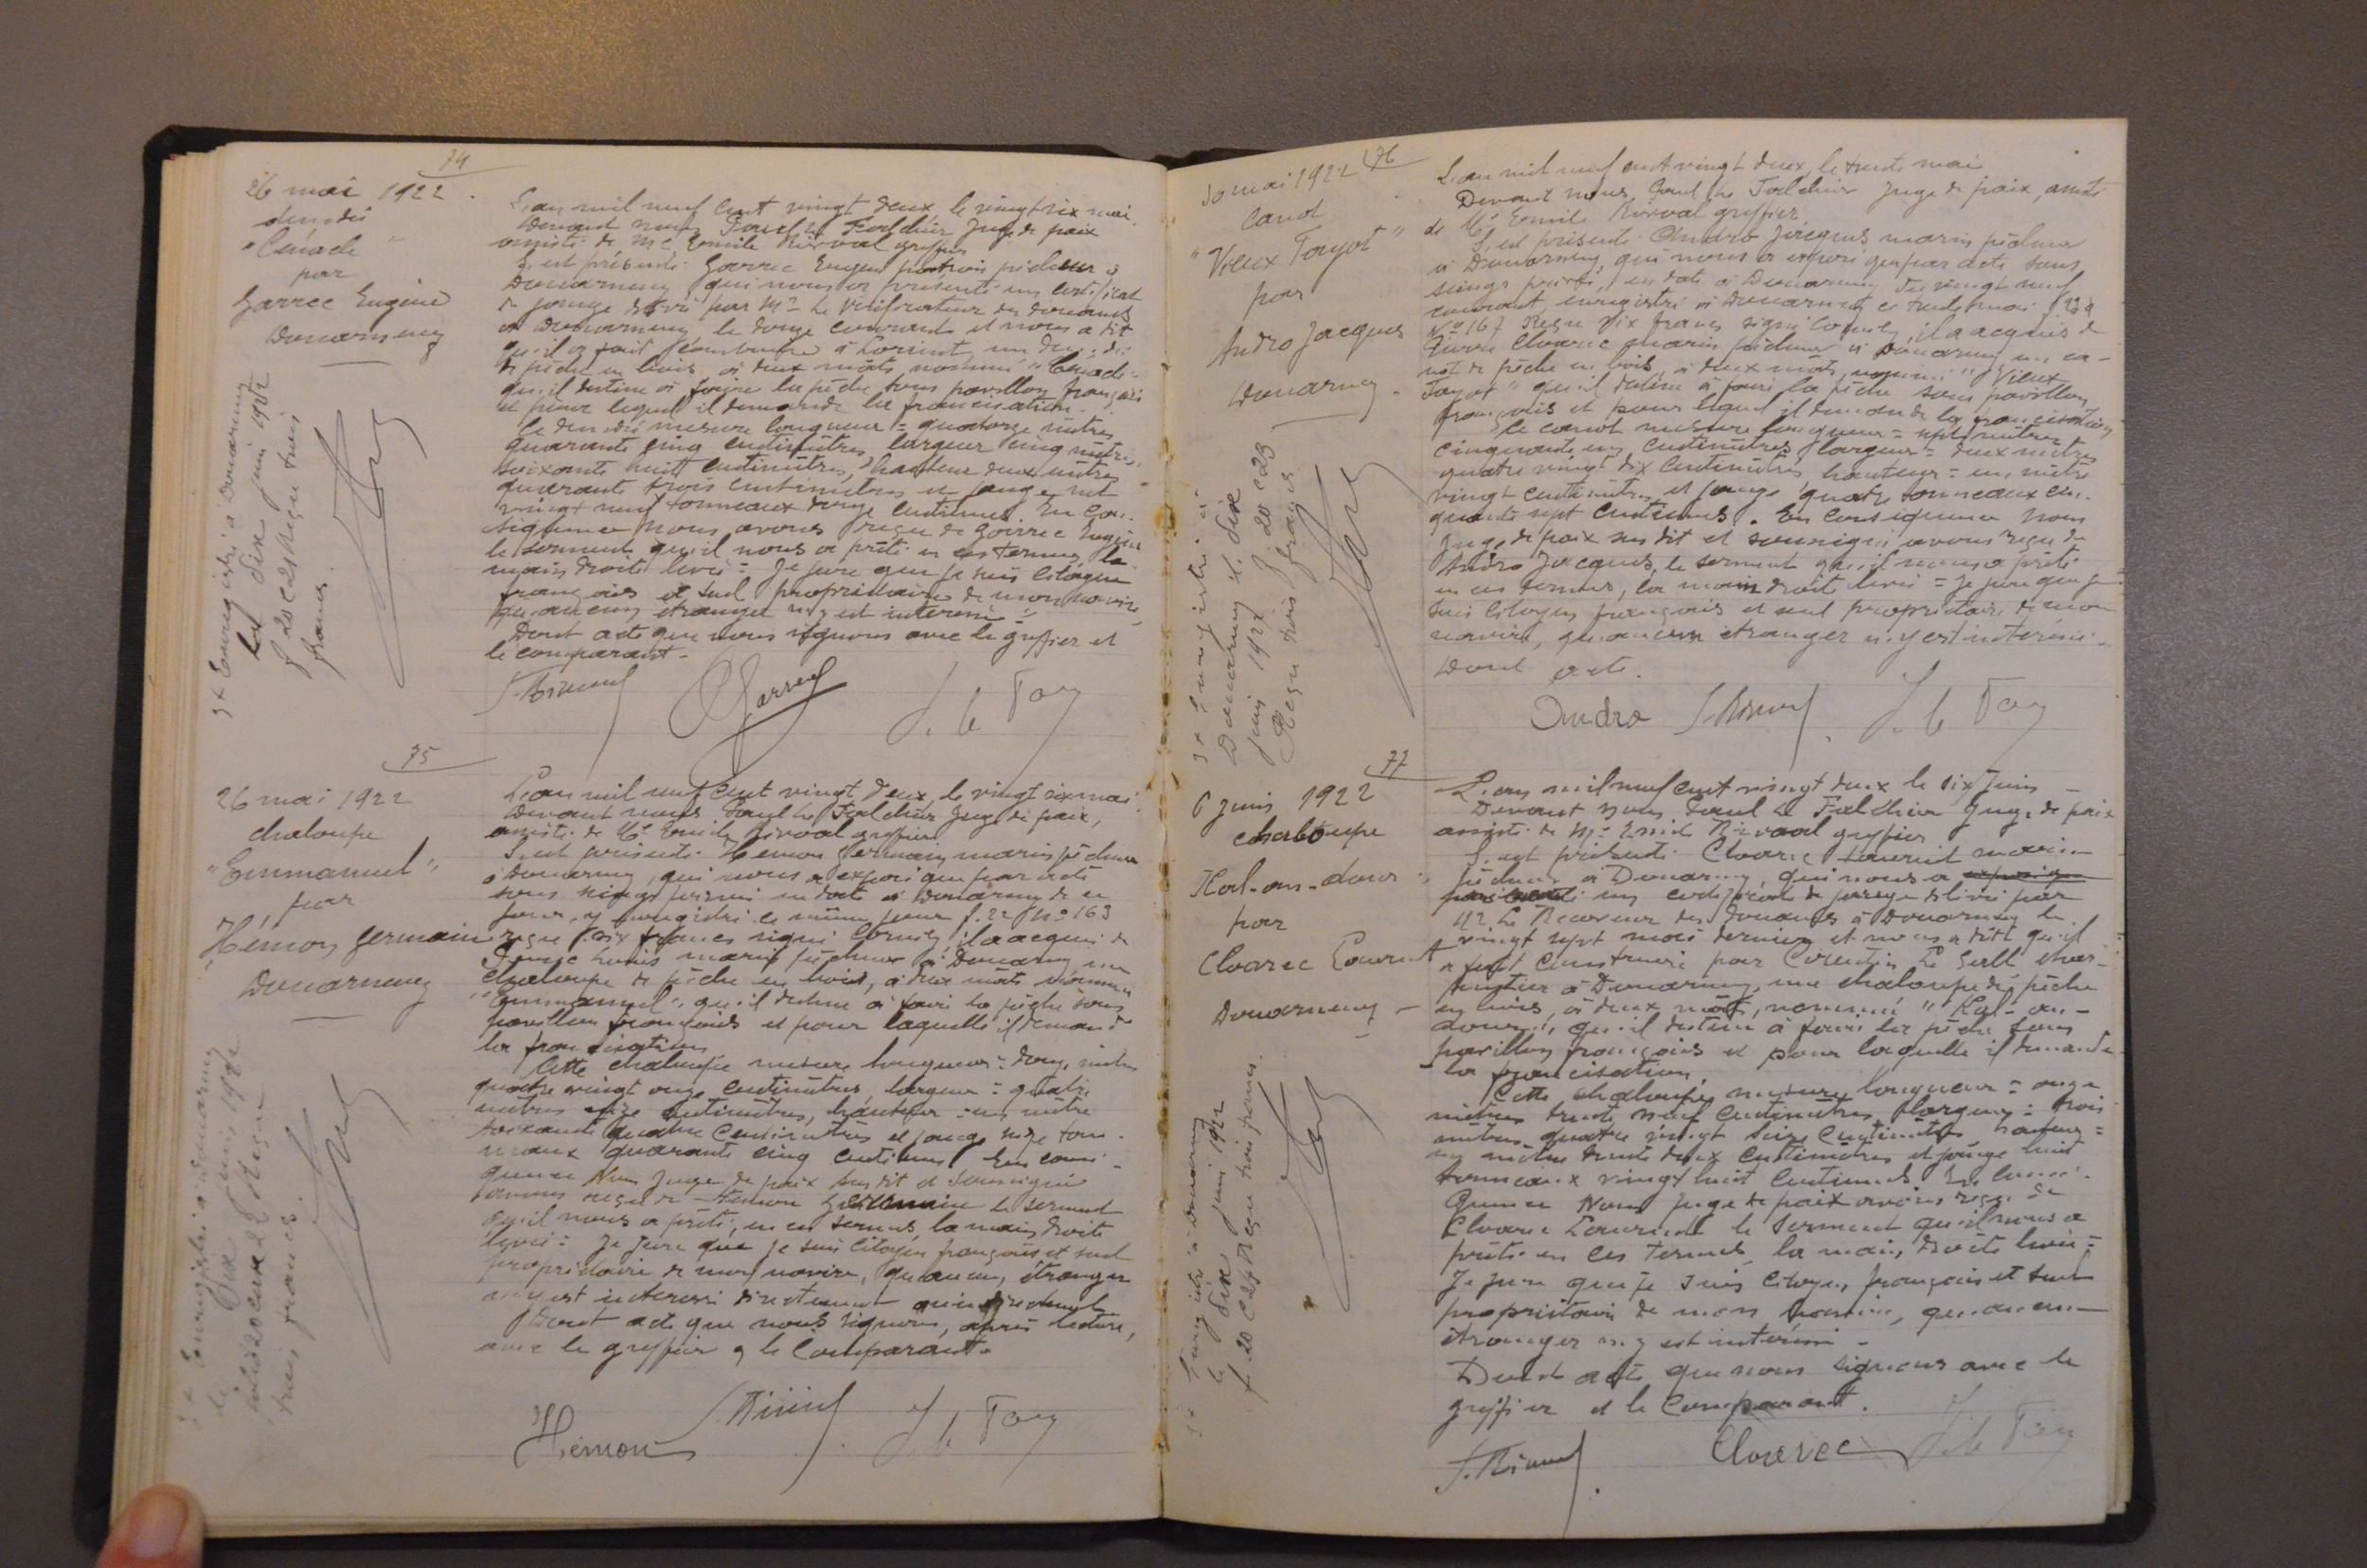 74
26 mai 1922
dundée
"Cénacle"
par
Garrec Eugène
Douarnenez
Enregistré à Douarnenez
le dix juin 1922
f 20 c 21 Reçu trois
francs.
L'an mil neuf cent vingt deux, le vingt six mai.
Devant nous Paul Le Falchier Juge de paix
assisté de Me Emile Kirval greffier
S'est présenté Garrec Eugène patron pêcheur à
Douarnenez qui nous a présenté un certificat
de jauge délivré par Mr le vérificateur des douanes
à Douarnenez le douze courant et nous a dit
qu'il a fait construire à Lorient un dundée
de pêche en bois, à deux mâts nommé "Cénacle"
qu'il destine à faire la pêche sous pavillon français
et pour lequel il demande la francisation.
Ce dundée mesure longueur = quatorze mètres
quarante cinq centimètres, largeur cinq mètres
soixante huit centimètres, hauteur deux mètres
quarante trois centimètres et jauge net
vingt neuf tonneaux douze centièmes. En con-
séquence Nous avons reçu de Garrec Eugène
le serment qu'il nous a prêté en ces termes, la
main droite levée = Je jure que je suis citoyen
français et seul propriétaire de mon navire,
qu'aucun étranger n'y est intéressé =
Dont acte que nous signons avec le greffier et
le comparant -
Garrec
75
26 mai 1922
chaloupe
"Emmanuel"
par
Hémon Germain
Douarnenez
Enregistré à Douarnenez
le Dix juin 1922
folio 20 case 22 Reçu
trois francs.
L'an mil neuf cent vingt deux, le vingt six mai.
Devant nous Paul Le Falchier Juge de paix,
assisté de Me Emile Kirval greffier
S'est présenté Hémon Germain marin pêcheur
à Douarnenez, qui nous a exposé que par acte
sous seings privés en date à Douarnenez de ce
jour, y enregistré le même jour f. 22 No 163
reçu dix francs signé Cornily, il a acquis de
Louis marin pêcheur à Douarnenez une
chaloupe de pêche en bois, à deux mâts nommée
"Emmanuel", qu'il destine à faire la pêche sous
pavillon français et pour laquelle il demande
la francisation
Cette chaloupe mesure longueur = douze mètres
quatre vingt onze centimètres, largeur = quatre
mètres onze centimètres, hauteur = un mètre
soixante quatre centimètres et jauge seize ton-
neaux quarante cinq centièmes En consé-
quence Nous Juge de paix susdit et soussigné
avons reçu de Hémon Germain le serment
qu'il nous a prêté, en ces termes, la main droite
levée = Je jure que je suis citoyen français et seul
propriétaire de mon navire, qu'aucun étranger
n'y est intéressé directement ou indirectement
Dont acte que nous signons, après lecture,
avec le greffier & le Comparant.
Hémon
76
30 mai 1922
Canot
"Vieux Fayot"
par
Andro Jacques
Douarnenez
Enregistré à
Douarnenez le dix
juin 1922 f. 20 c 23
Reçu trois francs
L'an mil neuf cent vingt deux, le trente mai
Devant nous Paul Le Falchier Juge de paix, assisté
de Me Emile Kirval greffier
S'est présenté Andro Jacques marin pêcheur
à Douarnenez, qui nous a exposé que par acte sous
seings privés, en date à Douarnenez du vingt neuf
courant, enregistré à Douarnenez ce trente mai
No 167 Reçu dix francs signé Cornily, il a acquis de
Pierre Cloarec marin pêcheur à Douarnenez un ca-
not de pêche en bois, à deux mâts, nommé "Vieux
Fayot" qu'il destine à faire la pêche sous pavillon
français et pour lequel il demande la francisation
Ce canot mesure longueur = sept mètres
cinquante un centimètres, largeur = deux mètres
quatre vingt dix centimètres hauteur = un mètre
vingt centimètres et jauge quatre tonneaux cin-
quante sept centièmes. En conséquence Nous
Juge de paix susdit et soussigné avons reçu de
Andro Jacques, le serment qu'il nous a prêté
en ces termes, la main droite levée = Je jure que je
suis citoyen français et seul propriétaire de mon
navire, qu'aucun étranger n'y est intéressé.
Dont acte.
Andro
77
6 juin 1922
chaloupe
Kal-an-dour
par
Cloarec Laurent
Douarnenez
Enregistré à Douarnenez
le dix juin 1922
f. 20 c 24 Reçu trois francs.
L'an mil neuf cent vingt deux le six Juin
Devant nous Paul Le Falchier Juge de paix
assisté de Me Emile Kirval greffier
S'est présenté Cloarec Laurent marin
pêcheur à Douarnenez, qui nous a
présenté un certificat de jauge délivré par
Mr le Receveur des douanes à Douarnenez le
vingt sept mai dernier et nous a dit qu'il
a fait construire par Corentin Le Gall char-
pentier à Douarnenez, une chaloupe de pêche
en bois, à deux mâts, nommée "Kal-an-
dour", qu'il destine à faire la pêche sous
pavillon français et pour laquelle il demande
la francisation,
Cette chaloupe mesure longueur = onze
mètres trente neuf centimètres, largeur = trois
mètres quatre vingt seize centimètres, hauteur =
un mètre trente deux centimètres et jauge huit
tonneaux vingt huit centièmes En consé-
quence Nous juge de paix avons reçu de
Cloarec Laurent le serment qu'il nous a
prêté en ces termes, la main droite levée =
Je jure que je suis citoyen français et seul
propriétaire de mon navire, qu'aucun
étranger n'y est intéressé -
Dont acte que nous signons avec le
greffier et le Comparant.
Cloarec